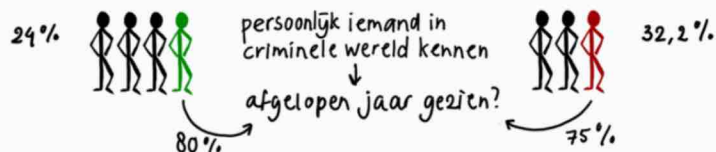 24%
persoonlijk iemand in
criminele wereld kennen
32,2%
afgelopen jaar gezien?
80%
75%